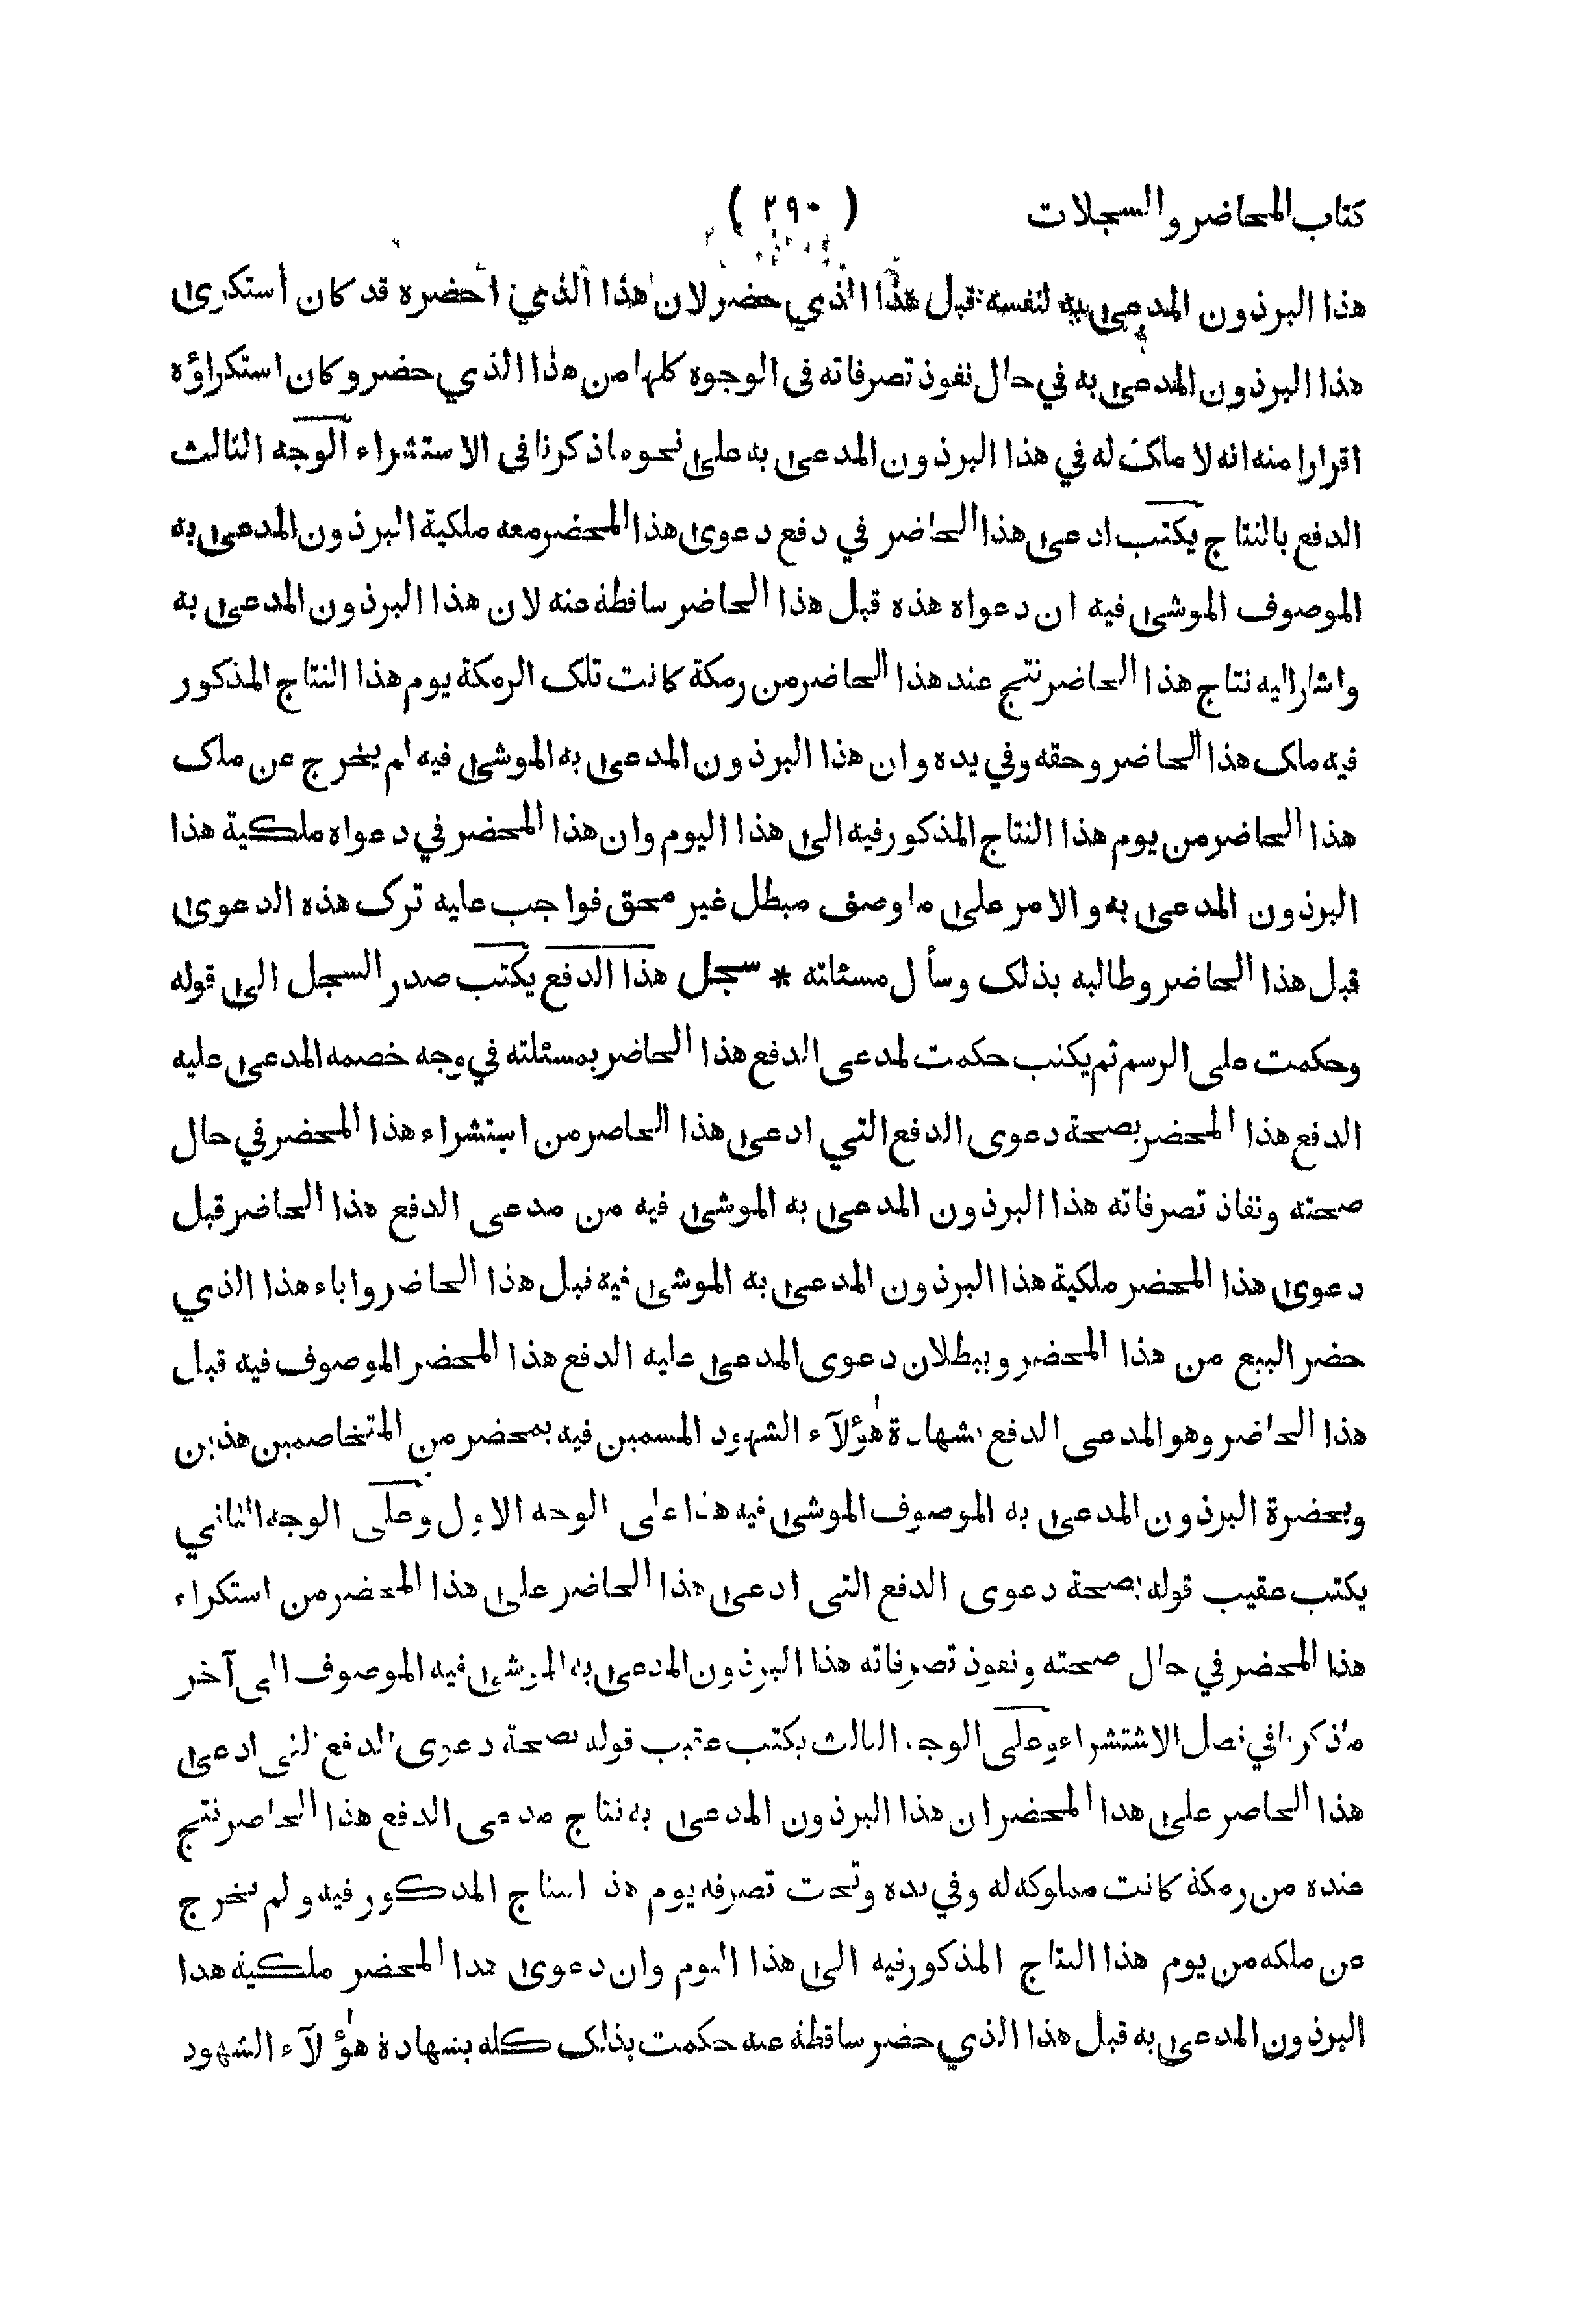 كتاب المحاضر والسجلات
( ٢٩٠ )
هذا البرذون المدعى به لنفسه قبل هذا الذي حضر لان هذا الذي احضره قد كان أستكرى
هذا البرذون المدعى به في حال نفوذ تصرفاته فى الوجوه كلها من هذا الذي حضر وكان استكراؤه
اقرارا منه انه لا ملك له في هذا البرذون المدعى به على نحو ما ذكرنا في الاستشراء الوجه الثالث
الدفع بالنتاج يكتب ادعى هذا الحاضر في دفع دعوى هذا المحضر معه ملكية البرذون المدعى به
الموصوف الموشى فيه ان دعواه هذه قبل هذا الحاضر ساقطة عنه لان هذا البرذون المدعى به
واشار اليه نتاج هذا الحاضر نتج عند هذا الحاضر من رمكة كانت تلك الرمكة يوم هذا النتاج المذكور
فيه ملك هذا الحاضر وحقه وفي يده وان هذا البرذون المدعى به الموشى فيه لم يخرج عن ملك
هذا الحاضر من يوم هذا النتاج المذكور فيه الى هذا اليوم وان هذا المحضر في دعواه ملكية هذا
البرذون المدعى به والامر على ما وصف مبطل غير محق فواجب عليه ترك هذه الدعوى
قبل هذا الحاضر وطالبه بذلك وسأل مسئلته * سجل هذا الدفع يكتب صدر السجل الى قوله
وحكمت على الرسم ثم يكتب حكمت لمدعى الدفع هذا الحاضر بمسئلته في وجه خصمه المدعى عليه
الدفع هذا المحضر بصحة دعوى الدفع التي ادعى هذا الحاضر من استشراء هذا المحضر في حال
صحته ونفاذ تصرفاته هذا البرذون المدعى به الموشى فيه من مدعى الدفع هذا الحاضر قبل
دعوى هذا المحضر ملكية هذا البرذون المدعى به الموشى فيه قبل هذا الحاضر واباء هذا الذي
حضر البيع من هذا المحضر وببطلان دعوى المدعى عليه الدفع هذا المحضر الموصوف فيه قبل
هذا الحاضر وهو المدعى الدفع بشهادة هٰؤلآء الشهود المسمين فيه بمحضر من المتخاصمين هذين
وبحضرة البرذون المدعى به الموصوف الموشى فيه هذا على الوجه الاول وعلى الوجه الثاني
يكتب عقيب قوله بصحة دعوى الدفع التى ادعى هذا الحاضر على هذا المحضر من استكراء
هذا المحضر في حال صحته ونفوذ تصرفاته هذا البرذون المدعى به الموشى فيه الموصوف الى آخر
ما ذكرنا في فصل الاشتشراء وعلى الوجه الثالث يكتب عقيب قوله بصحة دعوى الدفع التى ادعى
هذا الحاضر على هذا المحضر ان هذا البرذون المدعى به نتاج مدعى الدفع هذا الحاضر نتج
عنده من رمكة كانت مملوكه له وفي يده وتحت تصرفه يوم هذا النتاج المذكور فيه ولم يخرج
عن ملكه من يوم هذا النتاج المذكور فيه الى هذا اليوم وان دعوى هذا المحضر ملكية هذا
البرذون المدعى به قبل هذا الذي حضر ساقطة عنه حكمت بذلك كله بشهادة هٰؤلآء الشهود